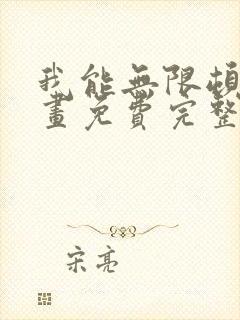 我能無限頓
畫免費完整
宋亮